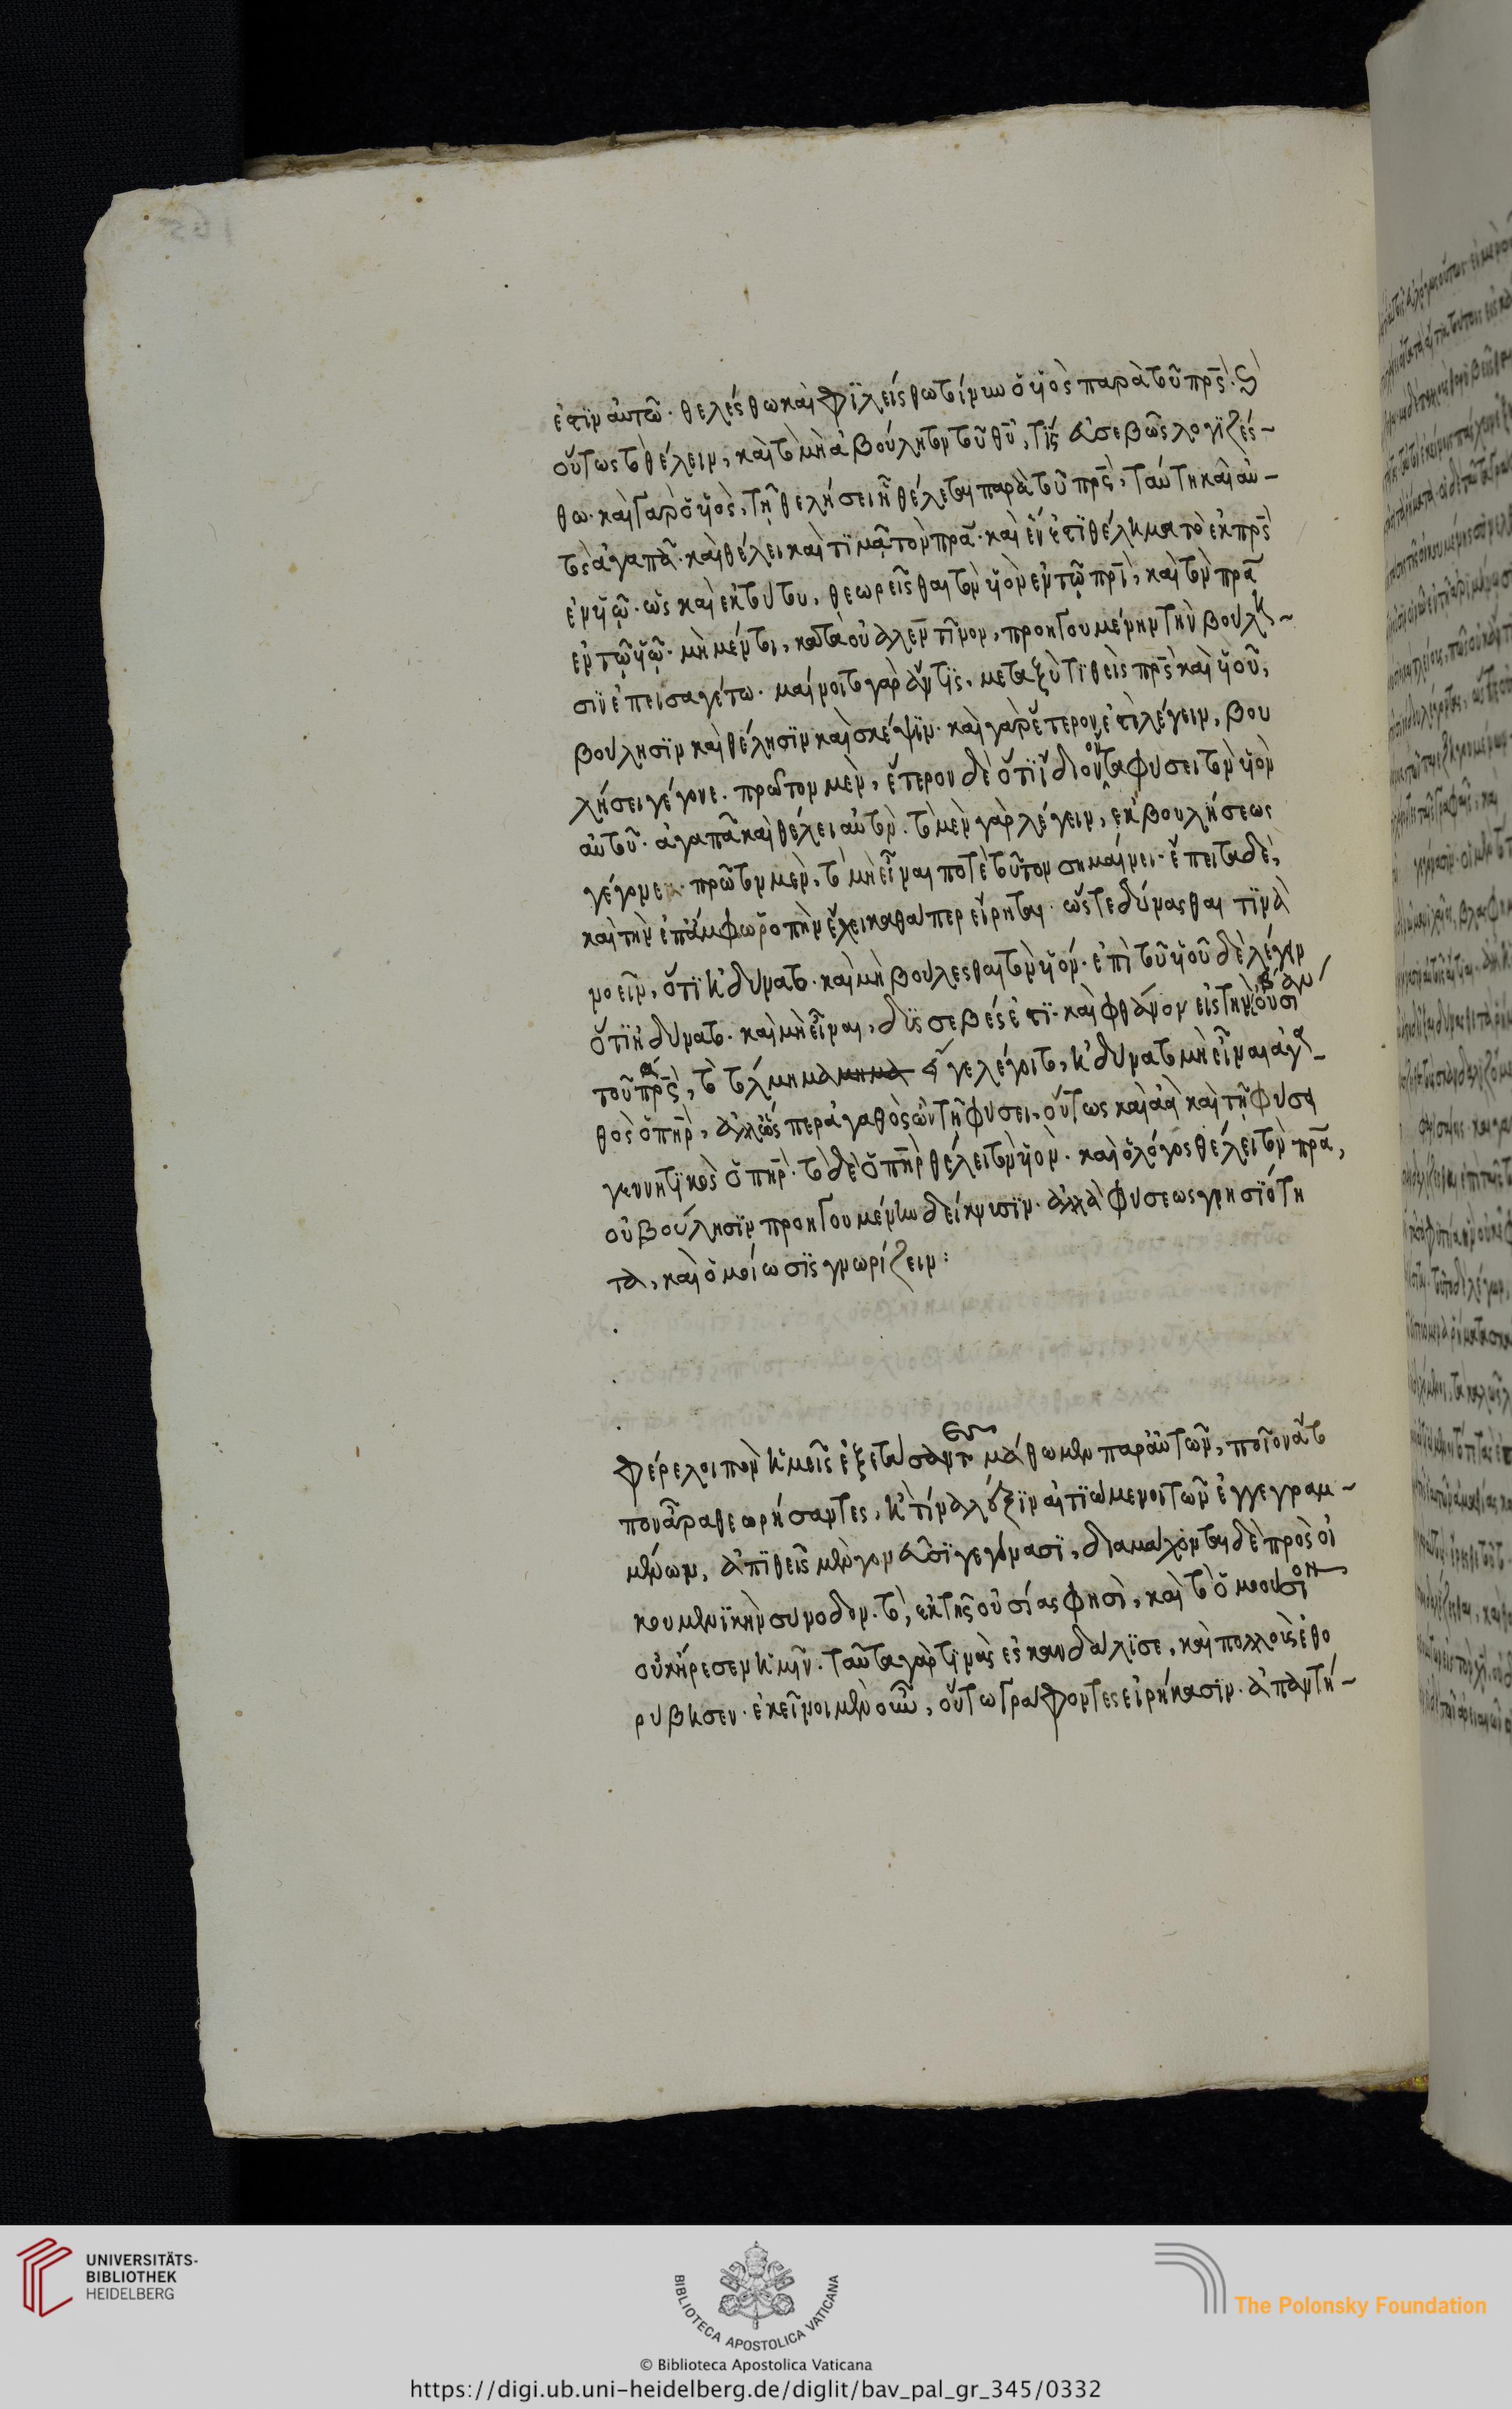 ἐστὶν αὐτῶ. θελέσθω καὶ φϊλείσθω τοίνυν ὁ ϋἱὸς παρὰ τοῦ πρς̅. κ̀
οὕτως τὸ θέλειν, καὶ τὸ μὴ ἀβούλητον τοῦ θυ̅, τῒς εὐσεβῶς λογϊζέσ-
θω. καὶ γὰρ ὁ ϋἱὸς, τῆ θελήσει ἧ θέλεται παρὰ τοῦ πρς̅, ταύτη καὶ αὐ-
τὸς ἀγαπᾶ. καὶ θέλει καὶ τϊμᾶ τὸν πρα̅. καὶ ἕν ἐστϊ θέλημα τὸ ἐκ πρς̅
ἐν ϋἱῶ. ὡς καὶ ἐκ τούτου, θεωρεῖσθαι τὸν ϋἱὸν ἐν τῶ πρι̅, καὶ τὸν πρα̅
ἐν τῶ ϋἱῶ. μὴ μέντοι, κατὰ οὐαλεντῖνον, προηγουμένην τὴν βούλη-
σϊν ἐπεισαγέτω. μαίνοιτο γὰρ ἄν τϊς, μεταξὺ τϊθεὶς πρς̅ καὶ ϋἱοῦ,
βούλησϊν καὶ θέλησϊν καὶ σκέψϊν. καὶ γὰρ ἕτερον ἐστὶ λέγειν, βου
λήσει γέγονε. πρῶτον μὲν, ἕτερον δὲ ὅτϊ ἴδιον ὄντα φύσει τὸν ϋἱὸν
αὐτοῦ. ἀγαπᾶ καὶ θέλει αὐτὸν. τὸ μὲν γὰρ λέγειν, ἐκ βουλήσεως
γέγονεν. πρῶτον μὲν, τὸ μὴ εἶναι ποτὲ τοῦτον σημαίνει. ἔπειτα δὲ,
καὶ τὴν ἐπ' ἄμφω ῥοπὴν ἔχει καθάπερ εἴρηται. ὥστε δύνασθαι τϊνὰ
νοεῖν, ὅτϊ ἠδύνατο. καὶ μὴ βούλεσθαι τὸν ϋἱόν. ἐπὶ τοῦ ϋἱοῦ δὲ λέγειν
ὅτϊ ἠδύνατο. καὶ μὴ εἶναι, δϋσσεβές ἐστϊ. καὶ φθάνον εἰς τὴν οὐσίαν
τοῦ πρς̅, τὸ τόλμημα εἴγε λέγοιτο, ἠδύνατο μὴ εἶναι ἀγα-
θὸς ὁ πηρ̅, ἀλλ' ὥσπερ ἀγαθὸς ὢν τῆ φύσει, οὕτως καὶ ἀεὶ καὶ τῆ φύσει
γεννητϊκὸς ὁ πηρ̅. τὸ δὲ ὁ πηρ̅ θέλει τὸν ϋἱὸν. καὶ ὁ λόγος θέλει τὸν πρα̅,
οὐ βούλησϊν προηγουμένην δείκνυσϊν. ἀλλὰ φύσεως γνησϊότη
τα, καὶ ὁμοίωσϊς γνωρίζειν:
φέρε λοιπὸν ἡμεῖς ἐξετάσαντες μάθωμεν παρ' αὐτῶν, ποῖον ἄτο
πον ἆρα θεωρήσαντες, ἢ τίνα λέξϊν αἰτϊώμενοι τῶν ἐγγεγραμ-
μένων, ἀπϊθεῖς μὲν γονεῦσϊ γεγόνασϊ, διαμάχονται δὲ πρὸς οἰ
κουμενϊκὴν σύνοδον. τὸ, ἐκ τῆς οὐσίας φησὶ, καὶ τὸ ὁμοούσιον
οὐκ ἤρεσεν ἡμῖν. ταῦτα γὰρ τϊνὰς ἐσκανδάλϊσε, καὶ πολλοὺς ἐθο
ρύβησεν. ἐκεῖνοι μὲν οὖν, οὕτω γράφοντες εἰρήκασϊν. ἀπαντή-
UNIVERSITÄTS-
BIBLIOTHEK
HEIDELBERG
BIBLIOTECA APOSTOLICA VATICANA
The Polonsky Foundation
© Biblioteca Apostolica Vaticana
https://digi.ub.uni-heidelberg.de/diglit/bav_pal_gr_345/0332